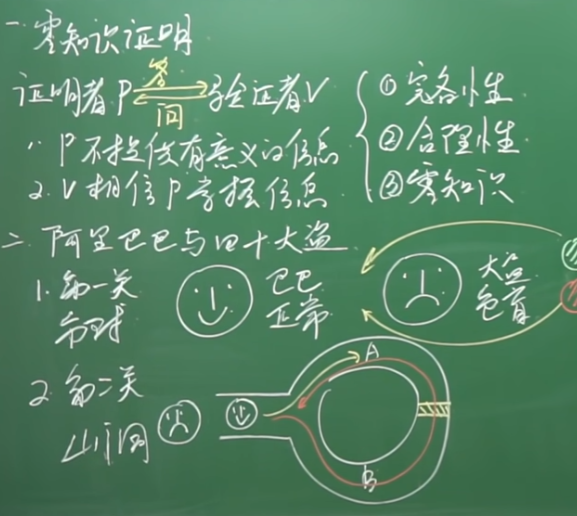 一 零知识证明
证明者P 答 问 验证者V
1. P不提供有意义的信息
2. V相信P掌握信息
① 完备性
② 合理性
③ 零知识
二、阿里巴巴与四十大盗
1. 第一关
分球
巴巴
正常
大盗
色盲
2. 第二关
山洞
A
B